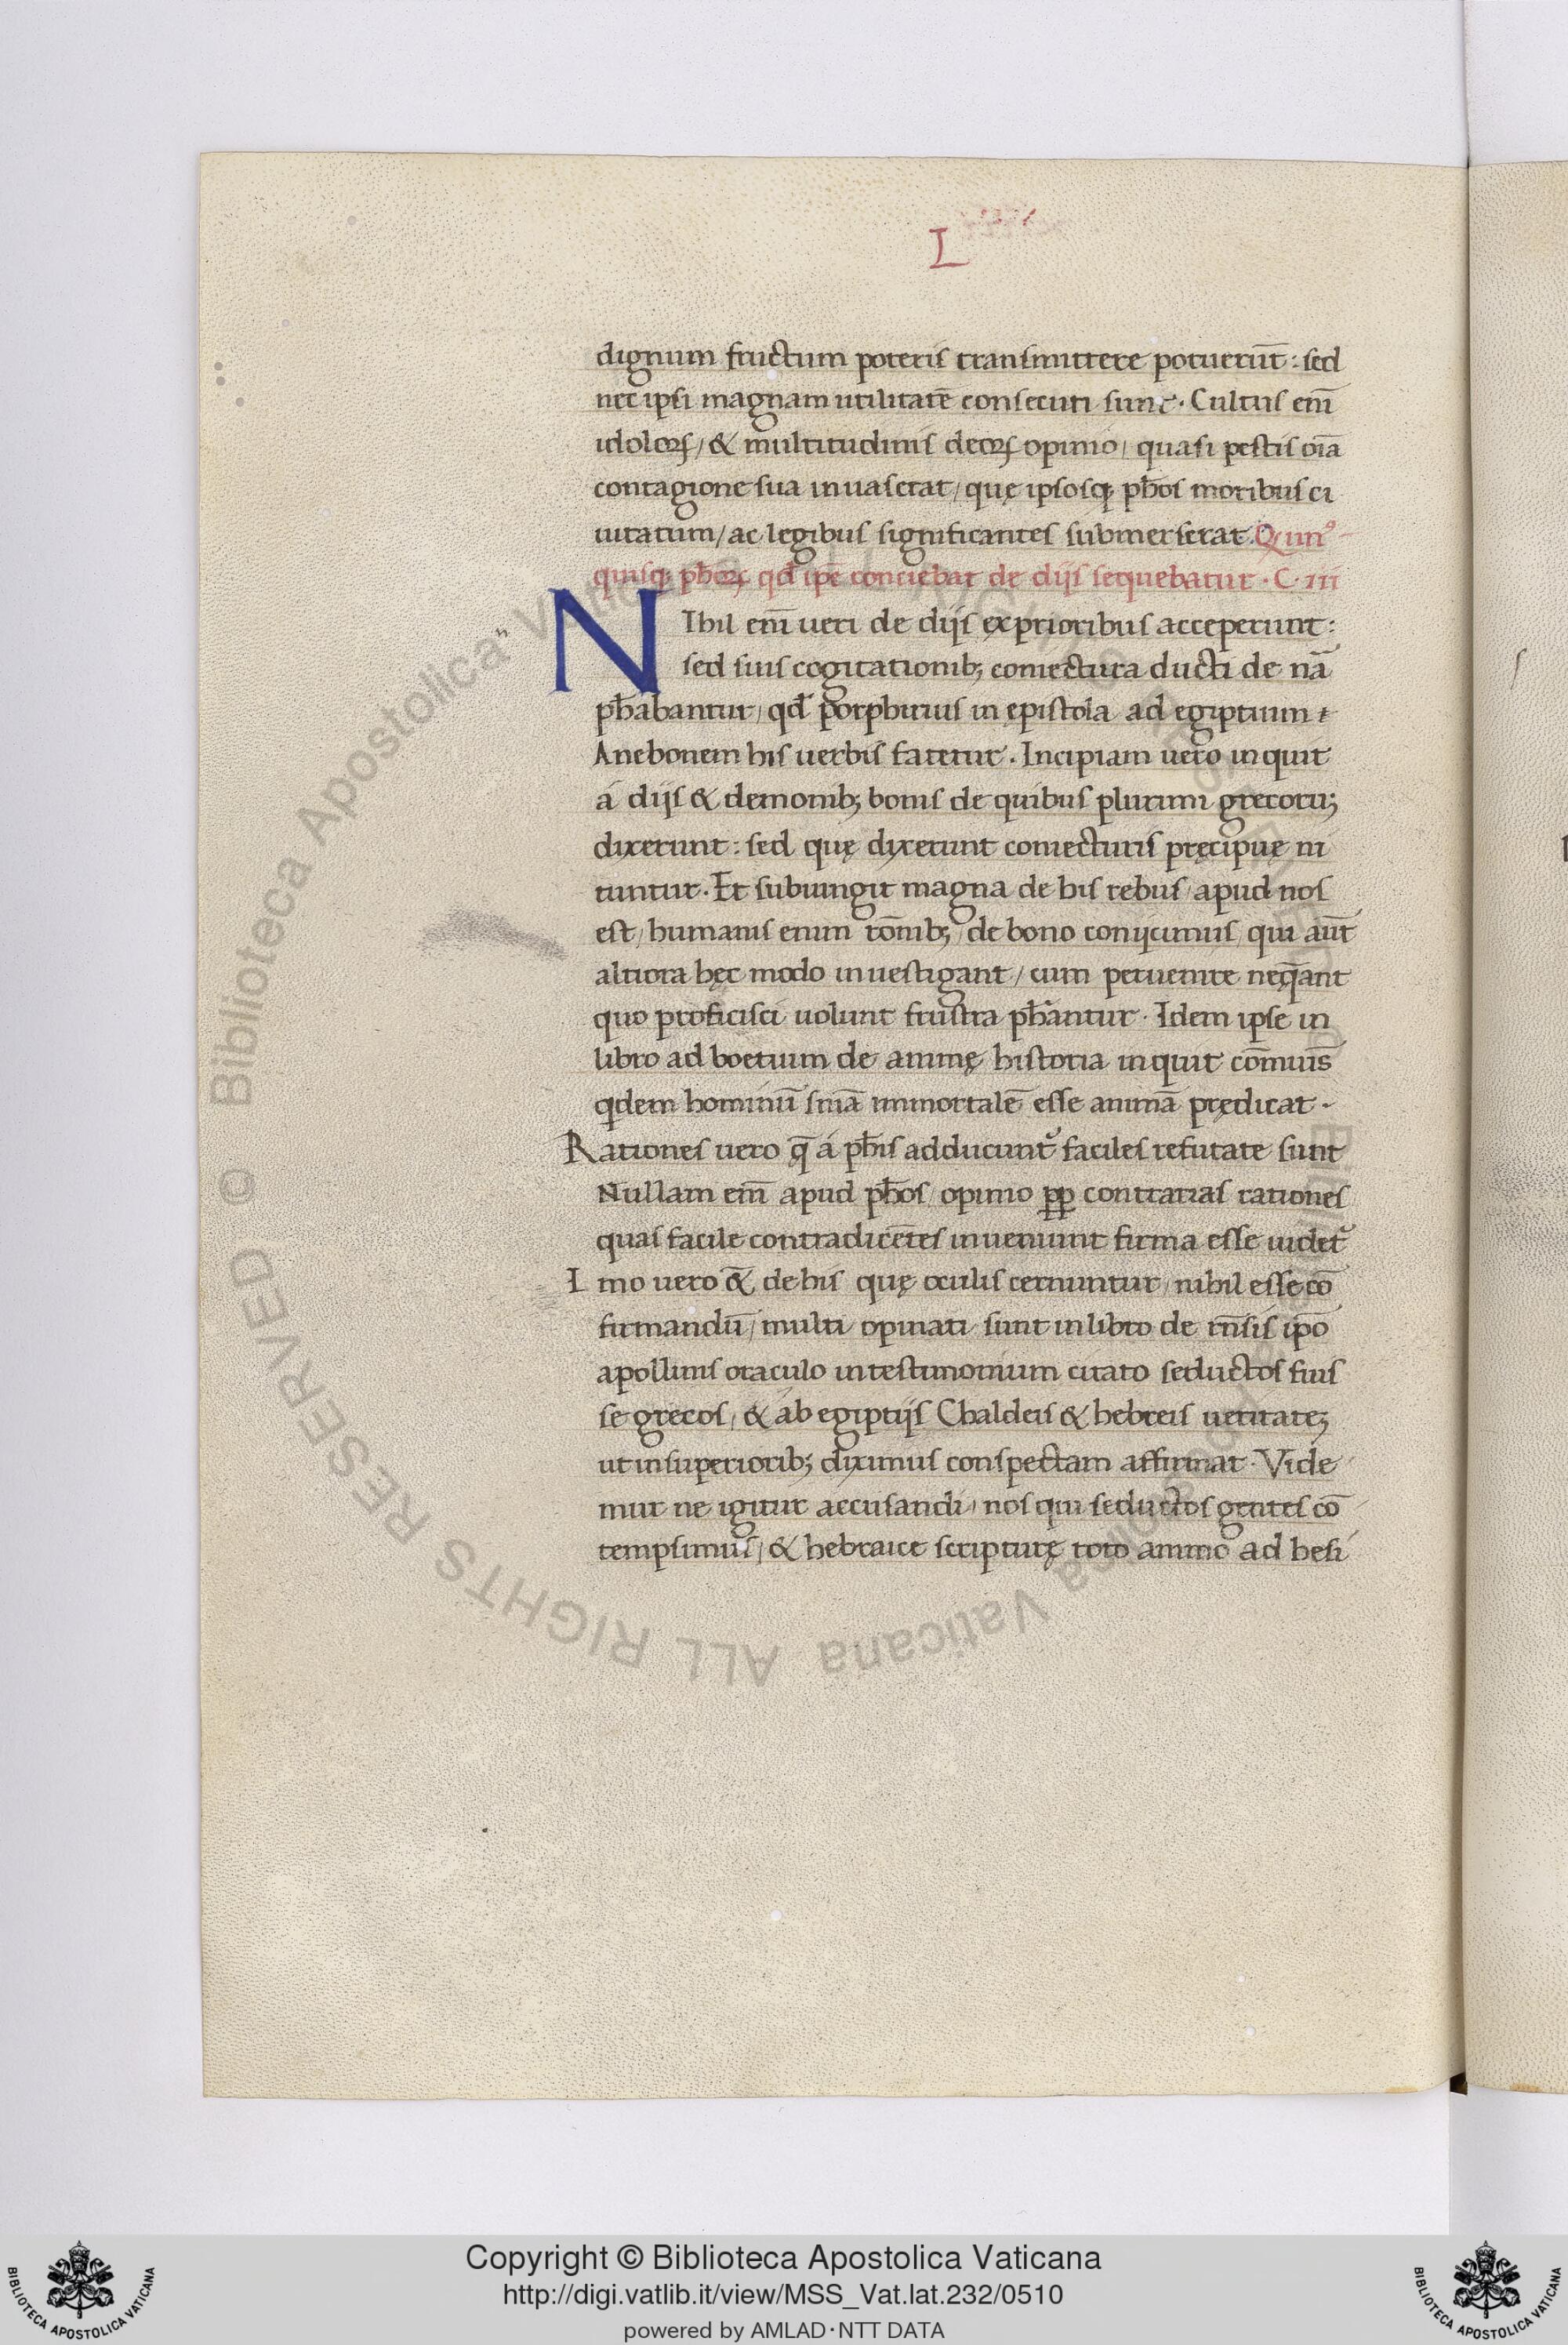 L
dignum fructum poteris transmittere potuerūt: sed
nec ipsi magnam utilitatē consecuti sunt. Cultus em̄
idoloꝝ/ & multitudinis deoꝝ opinio/ quasi pestis oīa
contagione sua inuaserat/ quę ipsosqꝫ ph̄os moribus ci
uitatum/ ac legibus significantes submerserat. Q un᷒
quisqꝫ ph̄oꝝ qd̄ ipē conciebat de dijs sequebatur. C. III
NIhil em̄ ueri de dijs ex prioribus acceperunt:
sed suis cogitationibꝫ coniectura ducti de nā
ph̄abantur/ qd̄ porphirius in epistola ad egiptium
Anebonem his uerbis fatetur. Incipiam uero inquit
á dijs & demonibꝫ bonis de quibus plurimi grecoruꝫ
dixerunt: sed quę dixerunt coniecturis pręcipuę ni
tuntur. Et subiungit magna de his rebus/ apud nos
est/ humanis enim rōnibꝫ/ de bono conijcimus/ qui aūt
altiora hęc modo inuestigant/ cum peruenire neq̄ant
quo proficisci uolunt frustra ph̄antur. Idem ipse in
libro ad boetium de animę historia inquit cōmuis̄
qdem hominū sniā immortalē esse animā prędicat.
Rationes uero q̄ á ph̄is adducunt᷑ faciles refutate sunt
Nullam em̄ apud ph̄os/ opinio ꝓꝑ contrarias rationes
quas facile contradicētes inueniunt firma esse uidet᷑
Imo uero & de his quę oculis cernuntur/ nihil esse cō
firmandū/ multi opinati sunt in libro de rn̄sis ipō
apollinis oraculo in testimonium citato seductos fuis
se grecos/ & áb egiptijs Chaldeis & hebreis ueritateꝫ
ut in superioribꝫ diximus conspectam affirmat. Vide
mur ne igitur accusandi/ nos qui seductos gentes cō
tempsimus/ & hebraice scripturę toto animo ad hesi
© Biblioteca Apostolica Vaticana ALL RIGHTS RESERVED
Copyright © Biblioteca Apostolica Vaticana
http://digi.vatlib.it/view/MSS_Vat.lat.232/0510
powered by AMLAD·NTT DATA
BIBLIOTECA APOSTOLICA VATICANA
BIBLIOTECA APOSTOLICA VATICANA